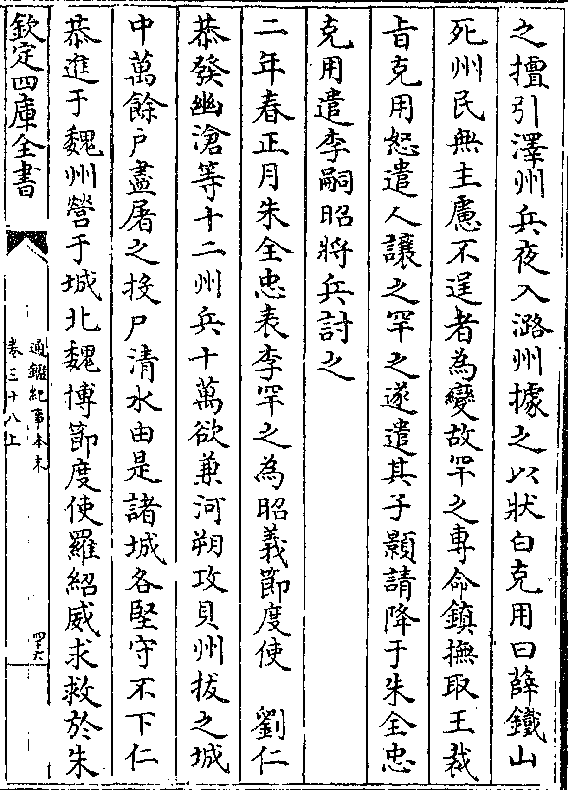 之擅引澤州兵夜入潞州據之以狀白克用曰薛鐵山
死州民無主慮不逞者為變故罕之專命鎮撫取王裁
旨克用怒遣人讓之罕之遂遣其子顥請降于朱全忠
克用遣李嗣昭將兵討之
二年春正月朱全忠表李罕之為昭義節度使　劉仁
恭發幽滄等十二州兵十萬欲兼河朔攻貝州拔之城
中萬餘户盡屠之投尸清水由是諸城各堅守不下仁
恭進于魏州營于城北魏博節度使羅紹威求救於朱
欽定四庫全書
通鑑紀事本末
卷三十八上
四十六